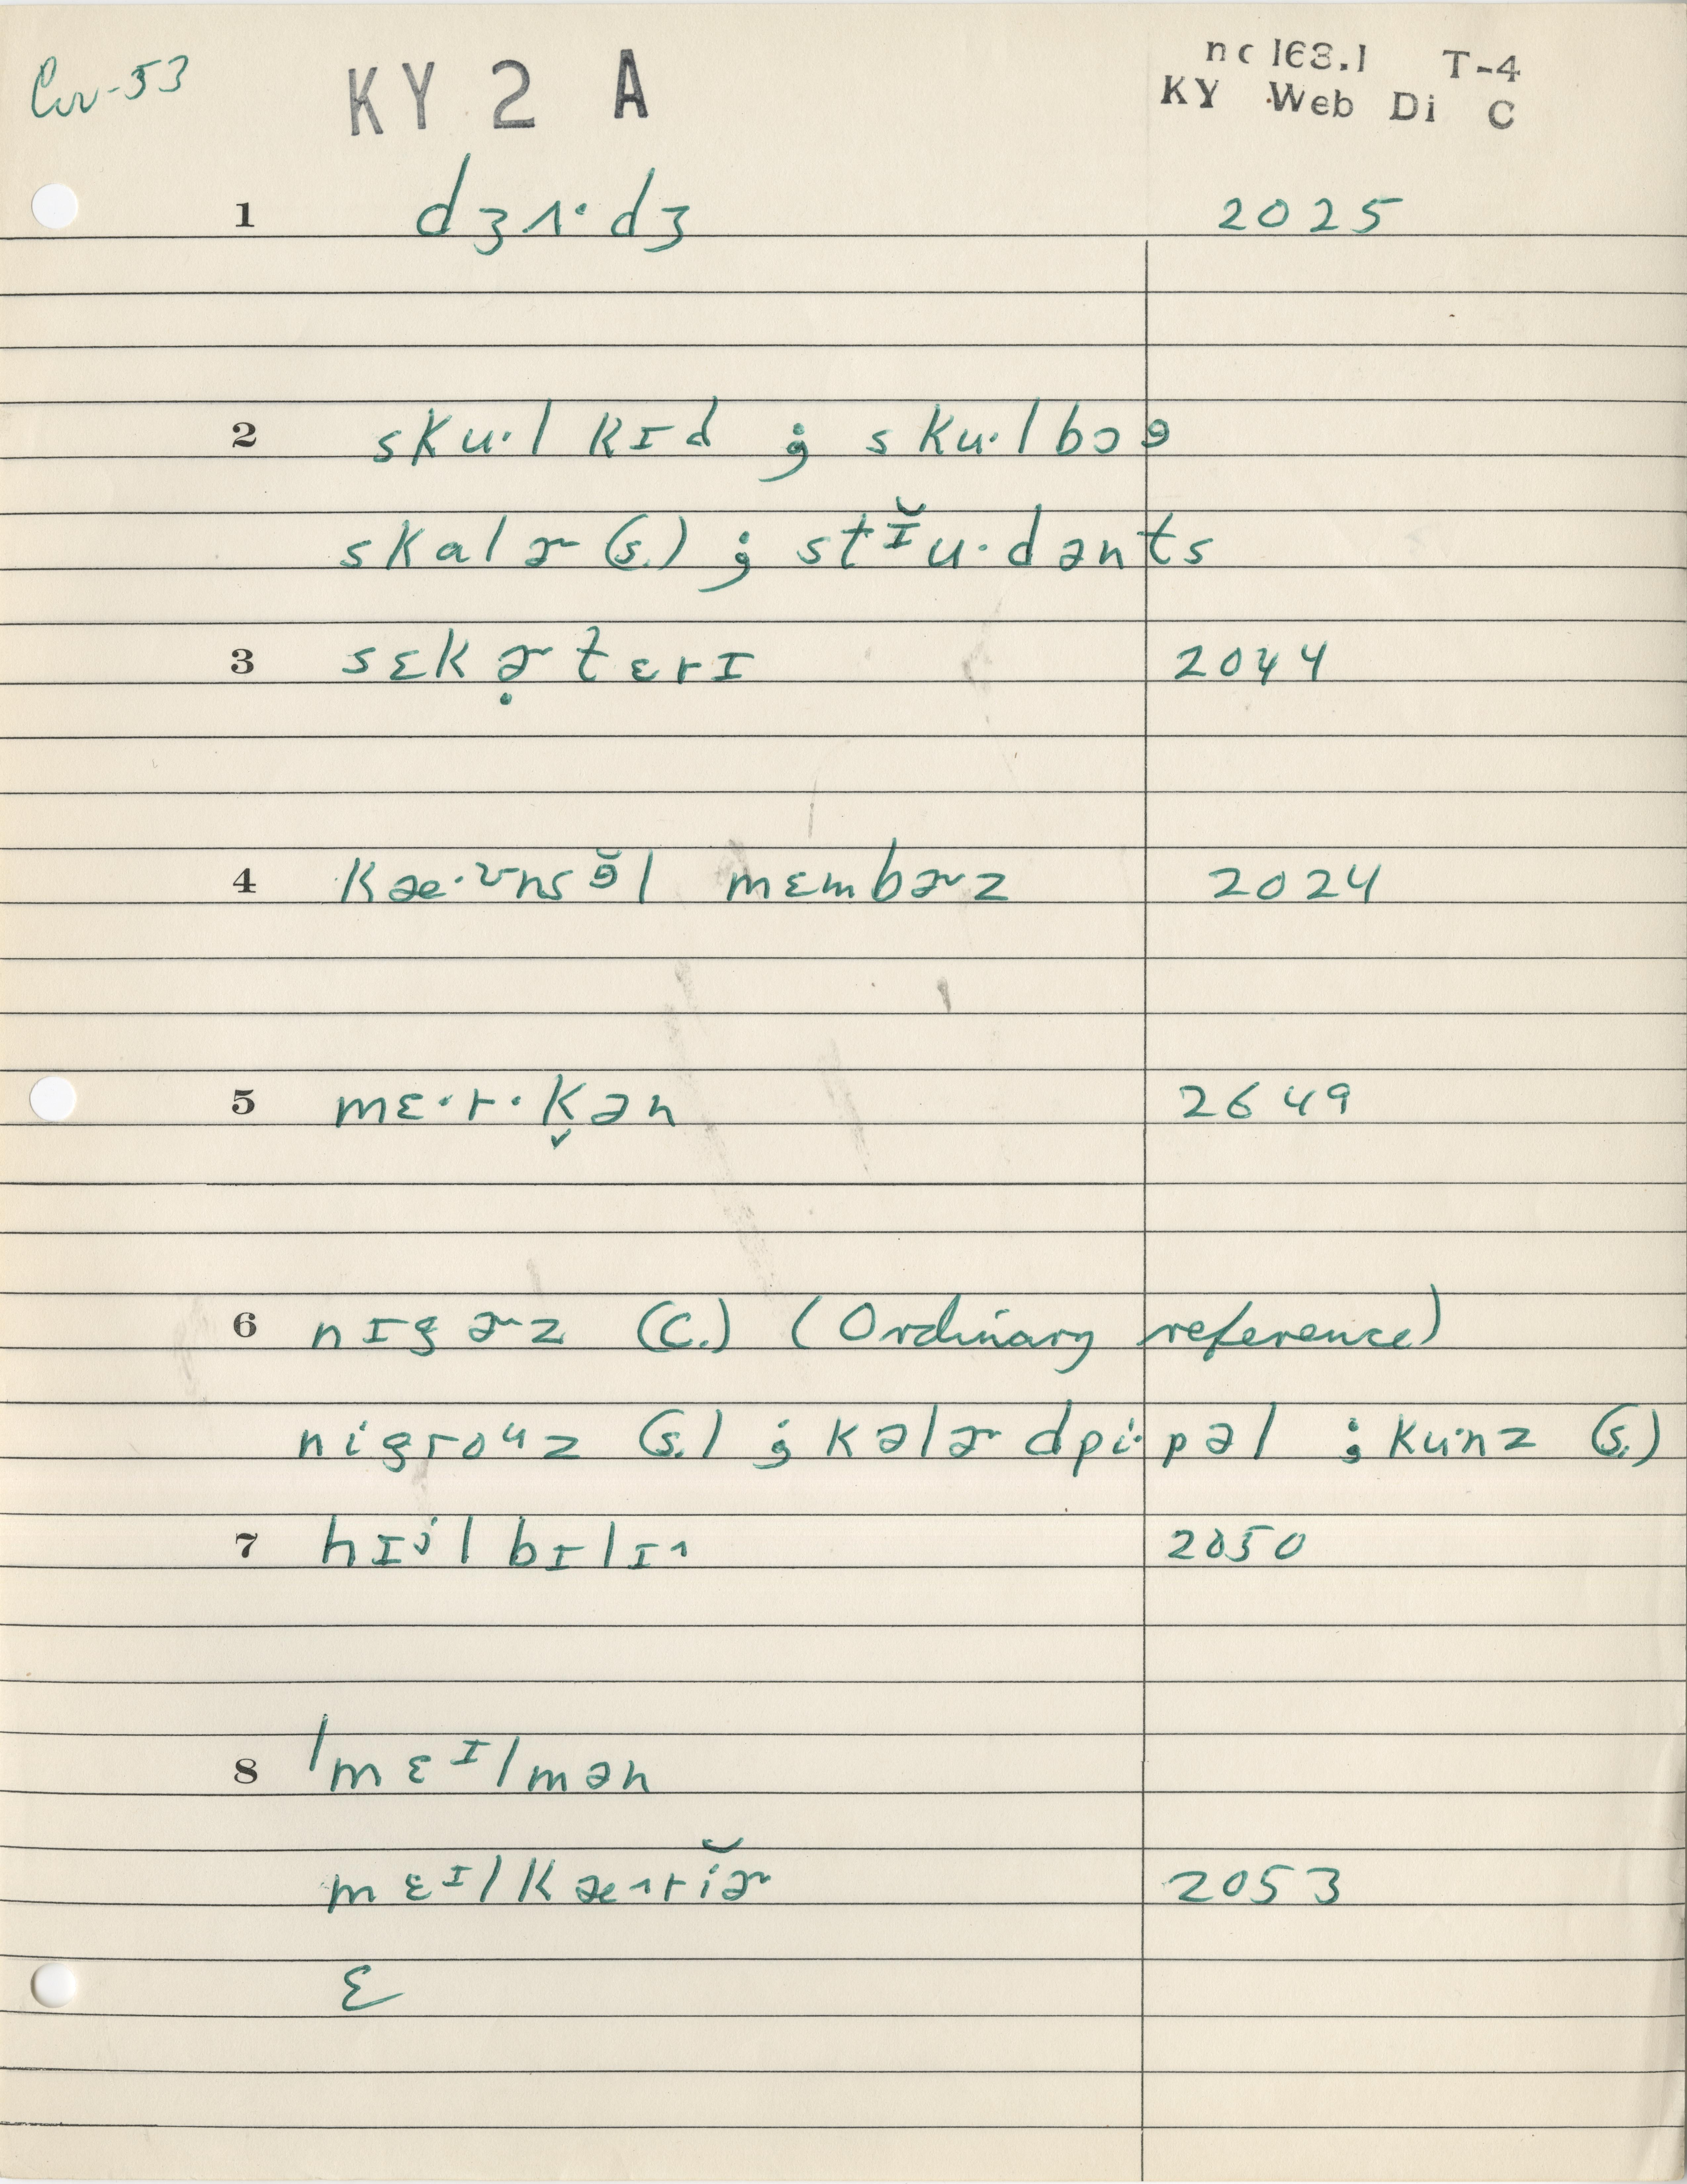 Cuv-53
KY 2 A
nc 163.1 T-4
KY Web Di C
1 dʒʌ·dʒ 2025
2 sku·l kɪd ; sku·lbɔɘ
skalɚ (s.) ; stɪ̆u·dənts
3 sɛkɚ̣tɛrɪ 2044
4 kæ·ʊnsɘ̆l mɛmbɚz 2024
5 mɛ·r·k̬ən 2649
6 nɪgɚz (C.) (Ordinary reference)
nigroᶸz (s.) ; kəlɚdpi·pəl ; ku·nz (s.)
7 hɪʲl bɪlɪ^ 2050
8 /mɛᴵlmən
mɛᴵlkæ^rĭɚ 2053
ɛ